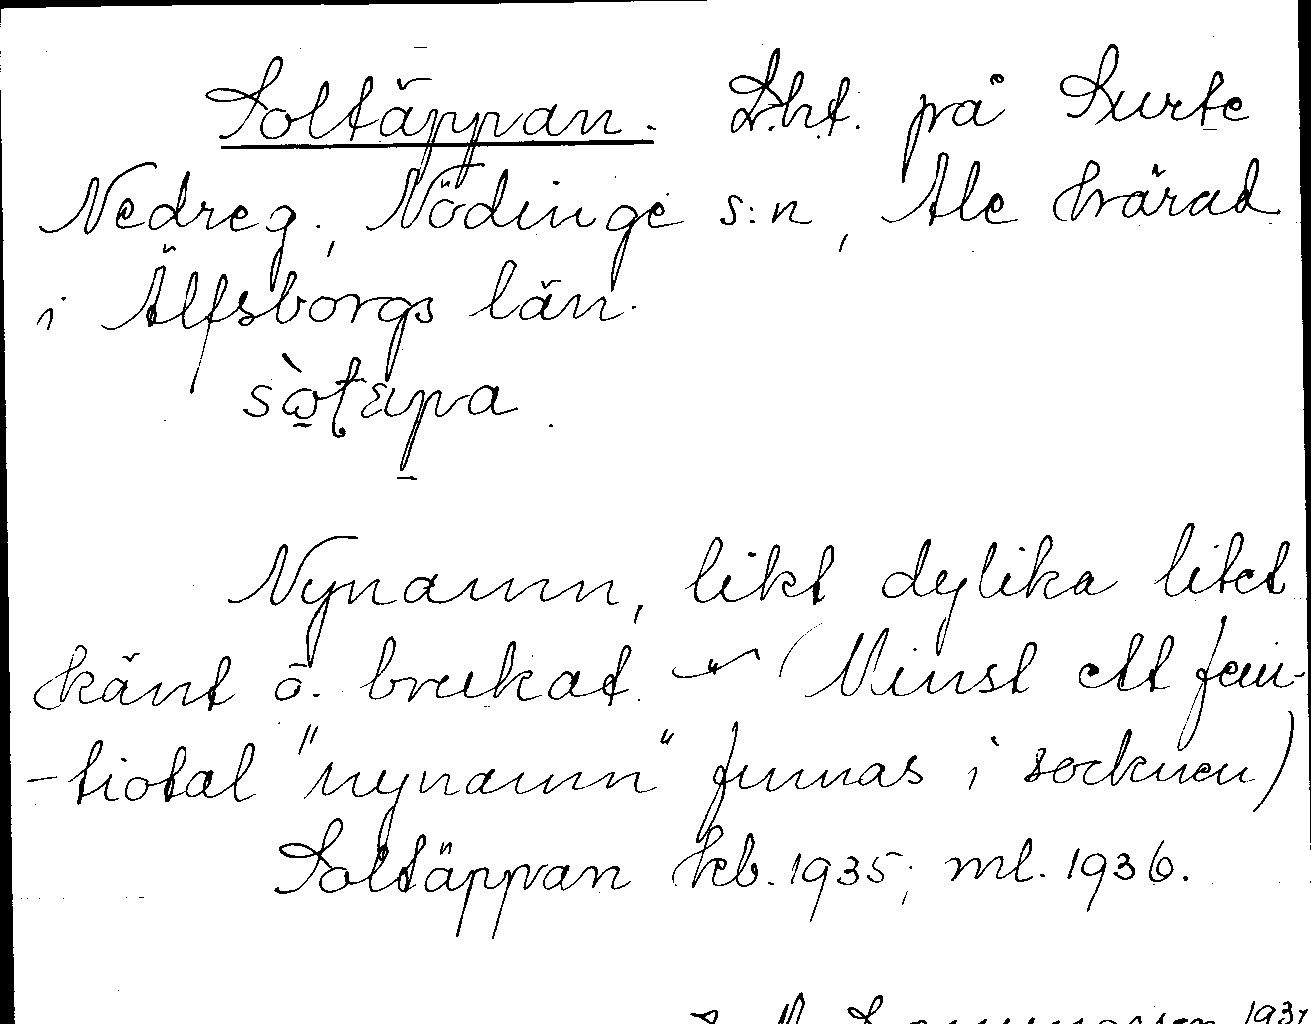 Soltäppan. Lht. på Surte
Nedreg., Nödinge s:n, Ale härad
i Älfsborgs län.
Nynamn, likt dylika litet
känt o. brukat. – (Minst ett fem-
-tiotal "nynamn" finnas i socknen)
Soltäppan kb. 1935; ml. 1936.